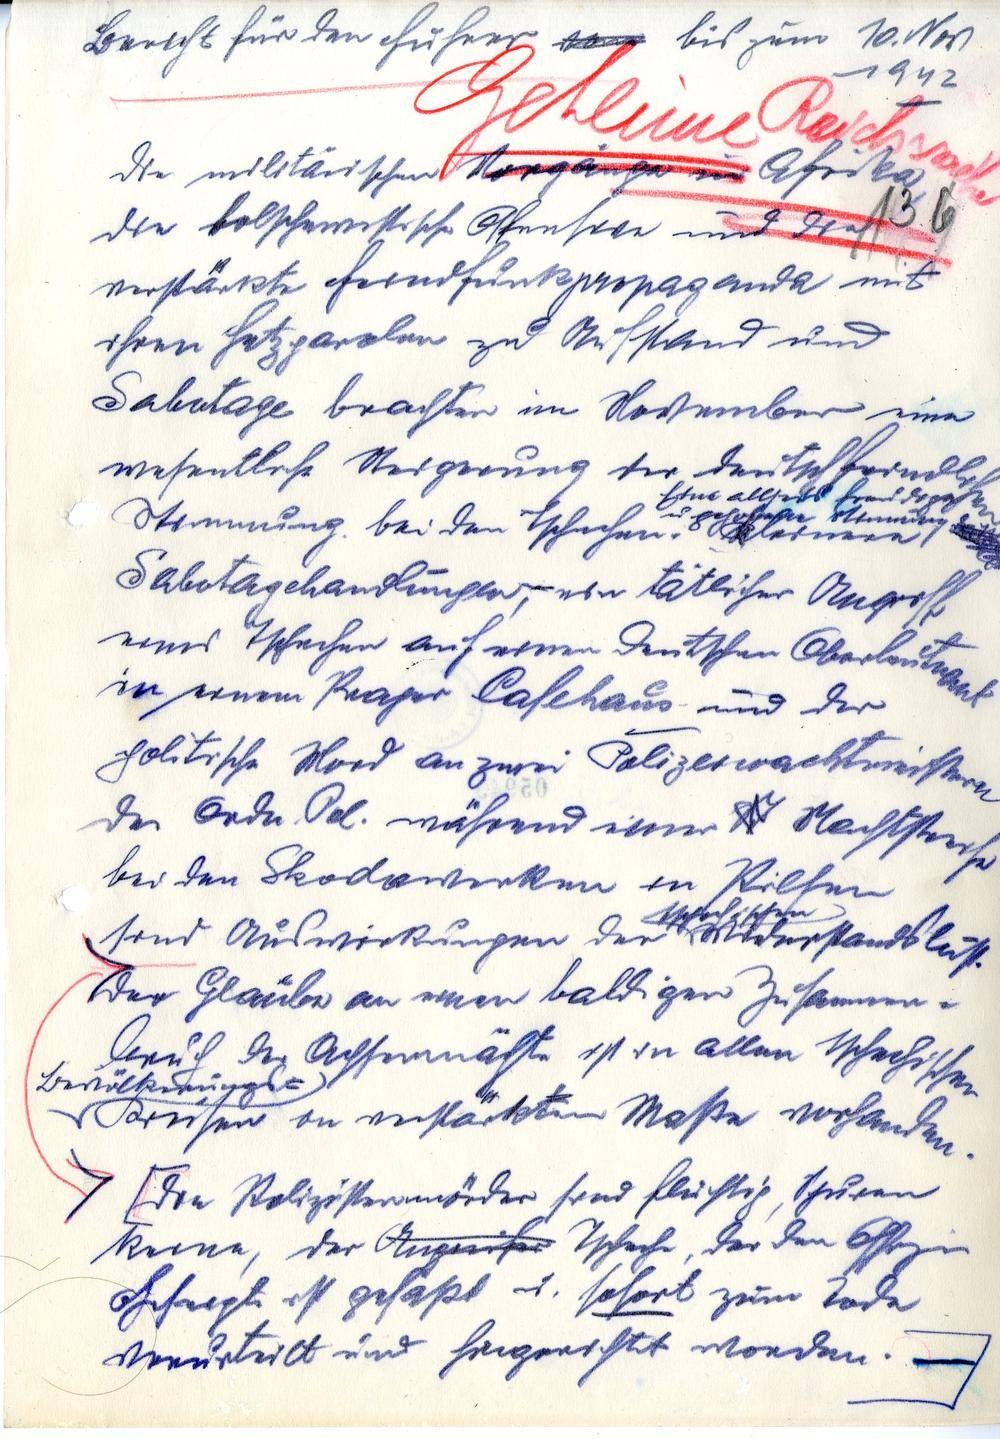 Bericht für den Führer bis zum 10. Nov
1942
Geheime Reichssache
Die militärischen Vorgänge in Afrika,
136
die bolschewistische Offensive und die
verstärkte Feindfunkpropaganda mit
ihren Hetzparolen zu Aufstand und
Sabotage brachten im November eine
wesentliche Steigerung der deutschfeindlichen
Eine allgem. freudige
u. gehobene Stimmung
Stimmung bei den Tschechen. Kleinere
Sabotagehandlungen, ein tätlicher Angriff
eines Tschechen auf einen deutschen Oberleutnant
in einem Prager Cafehaus und der
politische Mord an zwei Polizeiwachtmeistern
der Ordn. Pol. während einer Nachtstreife
bei den Skodawerken in Pilsen
tschechischen
sind Auswirkungen der Widerstandslust.
Der Glaube an einen baldigen Zusammen-
bruch der Achsenmächte ist in allen tschechischen
Bevölkerungs-
Kreisen in verstärktem Maße vorhanden.
[Die Polizistenmörder sind flüchtig, Spuren
keine, der Angreifer Tscheche, der den Offizier
ist gefaßt u. sofort zum Tode
verurteilt und hingerichtet worden.